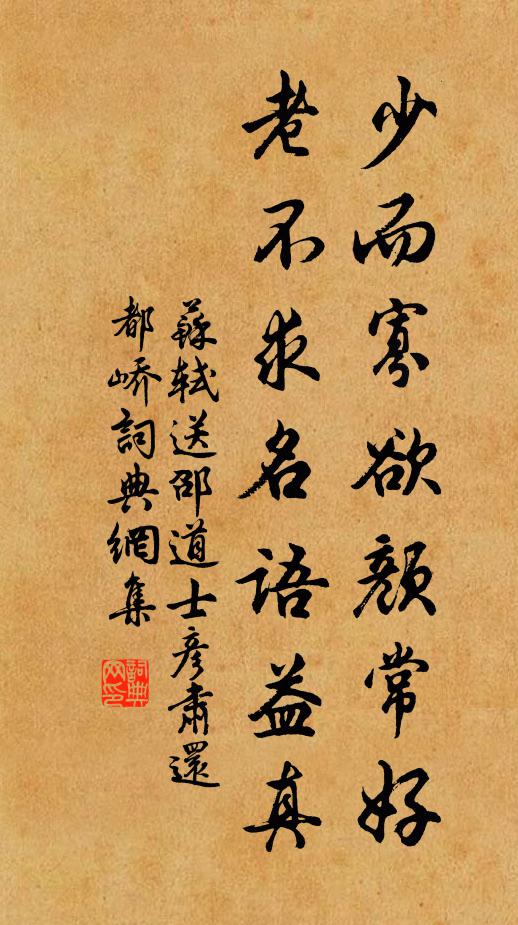 少而寡欲顏常好
老不求名語益真
蘇軾送邵道士彥肅還
都嶠詞典網集
詞典
网印